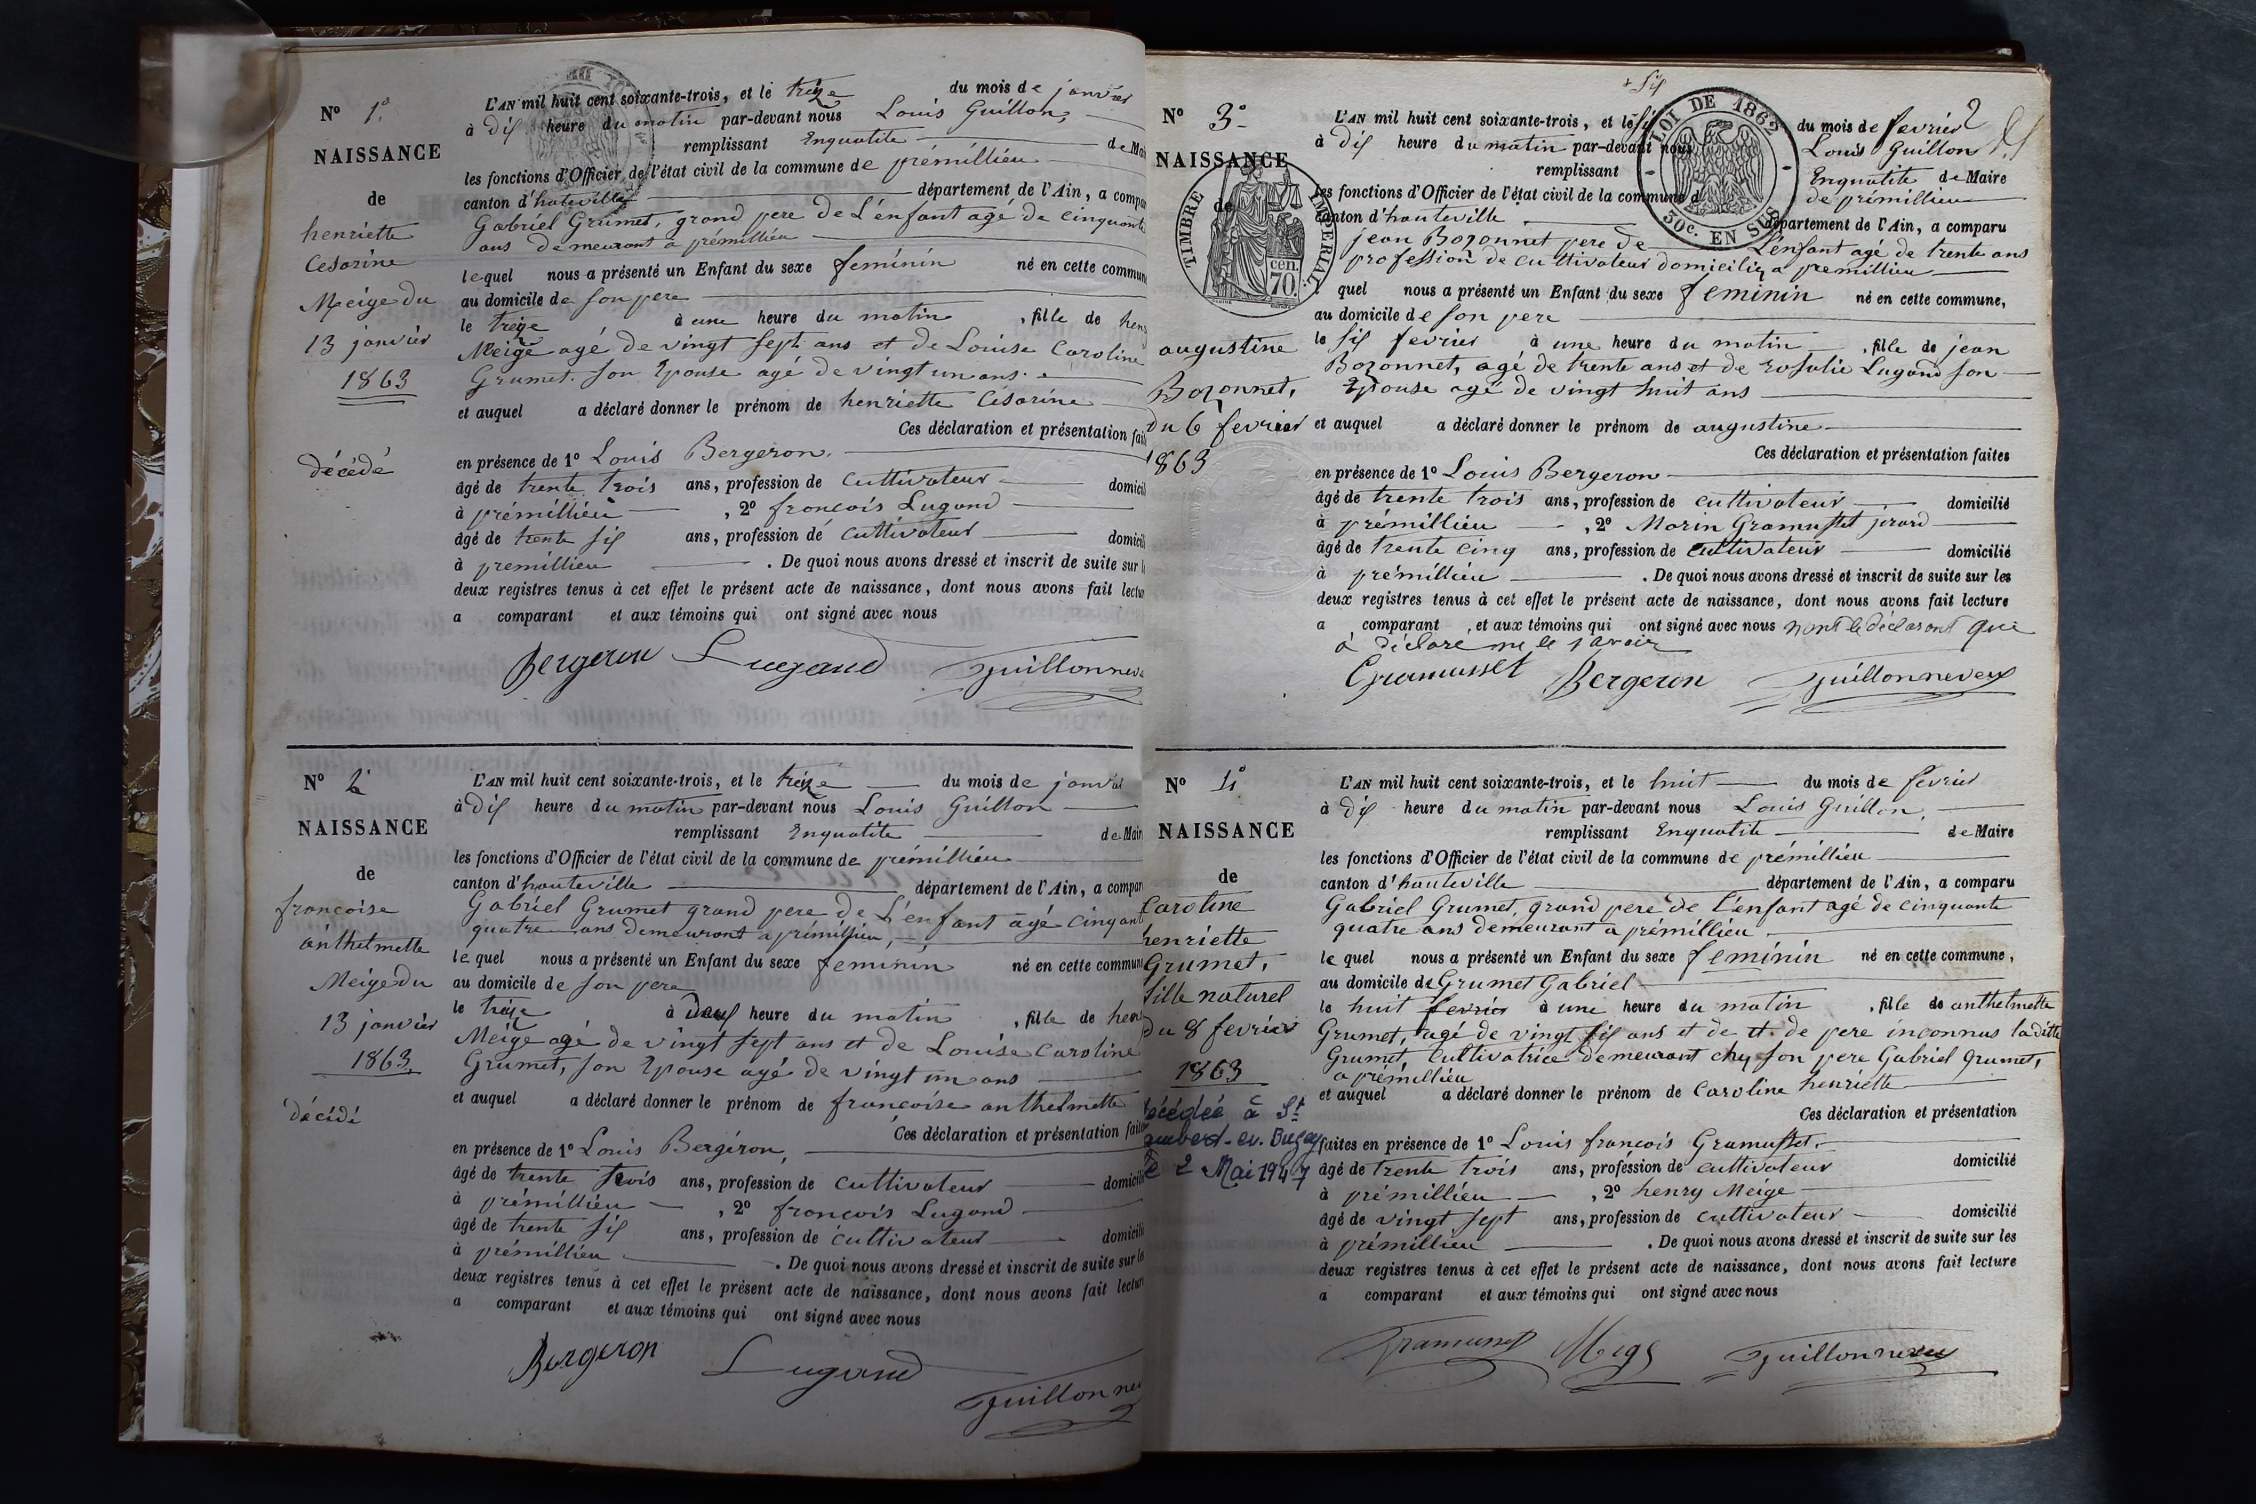 N° 1°
NAISSANCE
de
henriette
Cesarine
Meige du
13 janvier
1863
décédé
L'AN mil huit cent soixante-trois, et le treize du mois de janvier
à dix heure du matin par-devant nous Louis Guillon,
remplissant Enqualité de Mai
les fonctions d'Officier de l'état civil de la commune de prémillieu
canton d'hauteville département de l'Ain, a compa
Gabriel Grumet, grand pere de L'énfant agé de cinquante
ans demeurant a prémillieu
lequel nous a présenté un Enfant du sexe feminin né en cette commun
au domicile de son pere
le treize à une heure du matin, fille de hen
Meige agé de vingt sept ans et de Louise Caroline
Grumet. son Epouse agé de vingt un ans.
et auquel a déclaré donner le prénom de henriette Césarine
Ces déclaration et présentation fait
en présence de 1° Louis Bergeron.
âgé de trente trois ans, profession de cultivateur domicil
à prémillieu, 2° francois Lugand
âgé de trente six ans, profession de cultivateur domicil
à premillieu. De quoi nous avons dressé et inscrit de suite sur l
deux registres tenus à cet effet le présent acte de naissance, dont nous avons fait lectur
a comparant et aux témoins qui ont signé avec nous
Bergeron Lugand Guillon neve
N° 2°
NAISSANCE
de
francoise
anthelmette
Meige du
13 janvier
1863.
décédé
L'AN mil huit cent soixante-trois, et le treize du mois de janvier
à dix heure du matin par-devant nous Louis Guillon
remplissant Enqualité de Mair
les fonctions d'Officier de l'état civil de la commune de prémillieu
canton d'hauteville département de l'Ain, a compar
Gabriel Grumet grand pere de L'énfant agé cinquant
quatre ans demeurant a prémillieu,
lequel nous a présenté un Enfant du sexe feminin né en cette commun
au domicile de son pere
le treize à deux heure du matin, fille de hen
Meige agé de vingt sept ans et de Louise Caroline
Grumet, son Epouse agé de vingt un ans
et auquel a déclaré donner le prénom de francoise anthelmette
Ces déclaration et présentation fait
en présence de 1° Louis Bergeron,
âgé de trente trois ans, profession de cultivateur domicili
à prémillieu, 2° francois Lugand
âgé de trente six ans, profession de cultivateur domicili
à prémillieu. De quoi nous avons dressé et inscrit de suite sur le
deux registres tenus à cet effet le présent acte de naissance, dont nous avons fait lectur
a comparant et aux témoins qui ont signé avec nous
Bergeron Lugand Guillon nev
+ six
2
N° 3°
NAISSANCE
de
TIMBRE IMPERIAL
cen.
70.
augustine
Bozonnet,
du 6 fevrier
1863
LOI DE 1862
50c. EN SUS
L'AN mil huit cent soixante-trois, et le six du mois de fevrier
à dix heure du matin par-devant nous Louis Guillon
remplissant Enqualité de Maire
les fonctions d'Officier de l'état civil de la commune d de prémillieu
canton d'hauteville département de l'Ain, a comparu
jean Bozonnet pere de L'enfant agé de trente ans
profession de cultivateur domicilié a premillieu
quel nous a présenté un Enfant du sexe feminin né en cette commune,
au domicile de son pere
le six fevrier à une heure du matin, fille de jean
Bozonnet, agé de trente ans et de rosalie Lugand son
Epouse agé de vingt huit ans
et auquel a déclaré donner le prénom de augustine
Ces déclaration et présentation faites
en présence de 1° Louis Bergeron
âgé de trente trois ans, profession de cultivateur domicilié
à prémillieu, 2° Marin Gramusset
âgé de trente cinq ans, profession de cultivateur domicilié
à prémillieu. De quoi nous avons dressé et inscrit de suite sur les
deux registres tenus à cet effet le présent acte de naissance, dont nous avons fait lecture
a comparant, et aux témoins qui ont signé avec nous non le déclarant que
à déclaré ne le savoir
Gramusset Bergeron Guillon neveu
N° 4°
NAISSANCE
de
Caroline
henriette
Grumet,
fille naturel
du 8 fevrier
1863
décédée à St
ambert-en-Bugey
le 2 Mai 1947
L'AN mil huit cent soixante-trois, et le huit du mois de fevrier
à dix heure du matin par-devant nous Louis Guillon,
remplissant Enqualité de Maire
les fonctions d'Officier de l'état civil de la commune de prémillieu
canton d'hauteville département de l'Ain, a comparu
Gabriel Grumet, grand pere de L'enfant agé de cinquante
quatre ans demeurant a premillieu
le quel nous a présenté un Enfant du sexe feminin né en cette commune,
au domicile de Grumet Gabriel
le huit fevrier à une heure du matin, fille de anthelmette
Grumet, agé de vingt six ans et de et de pere inconnus ladite
Grumet, Cultivatrice demeurant chez son pere Gabriel Grumet,
a prémillieu
et auquel a déclaré donner le prénom de Caroline henriette
Ces déclaration et présentation
faites en présence de 1° Louis francois Gramusset.
âgé de trente trois ans, profession de cultivateur domicilié
à prémillieu, 2° henry Meige
âgé de vingt sept ans, profession de cultivateur domicilié
à prémillieu. De quoi nous avons dressé et inscrit de suite sur les
deux registres tenus à cet effet le présent acte de naissance, dont nous avons fait lecture
a comparant et aux témoins qui ont signé avec nous
Gramusset Meige Guillon neveu